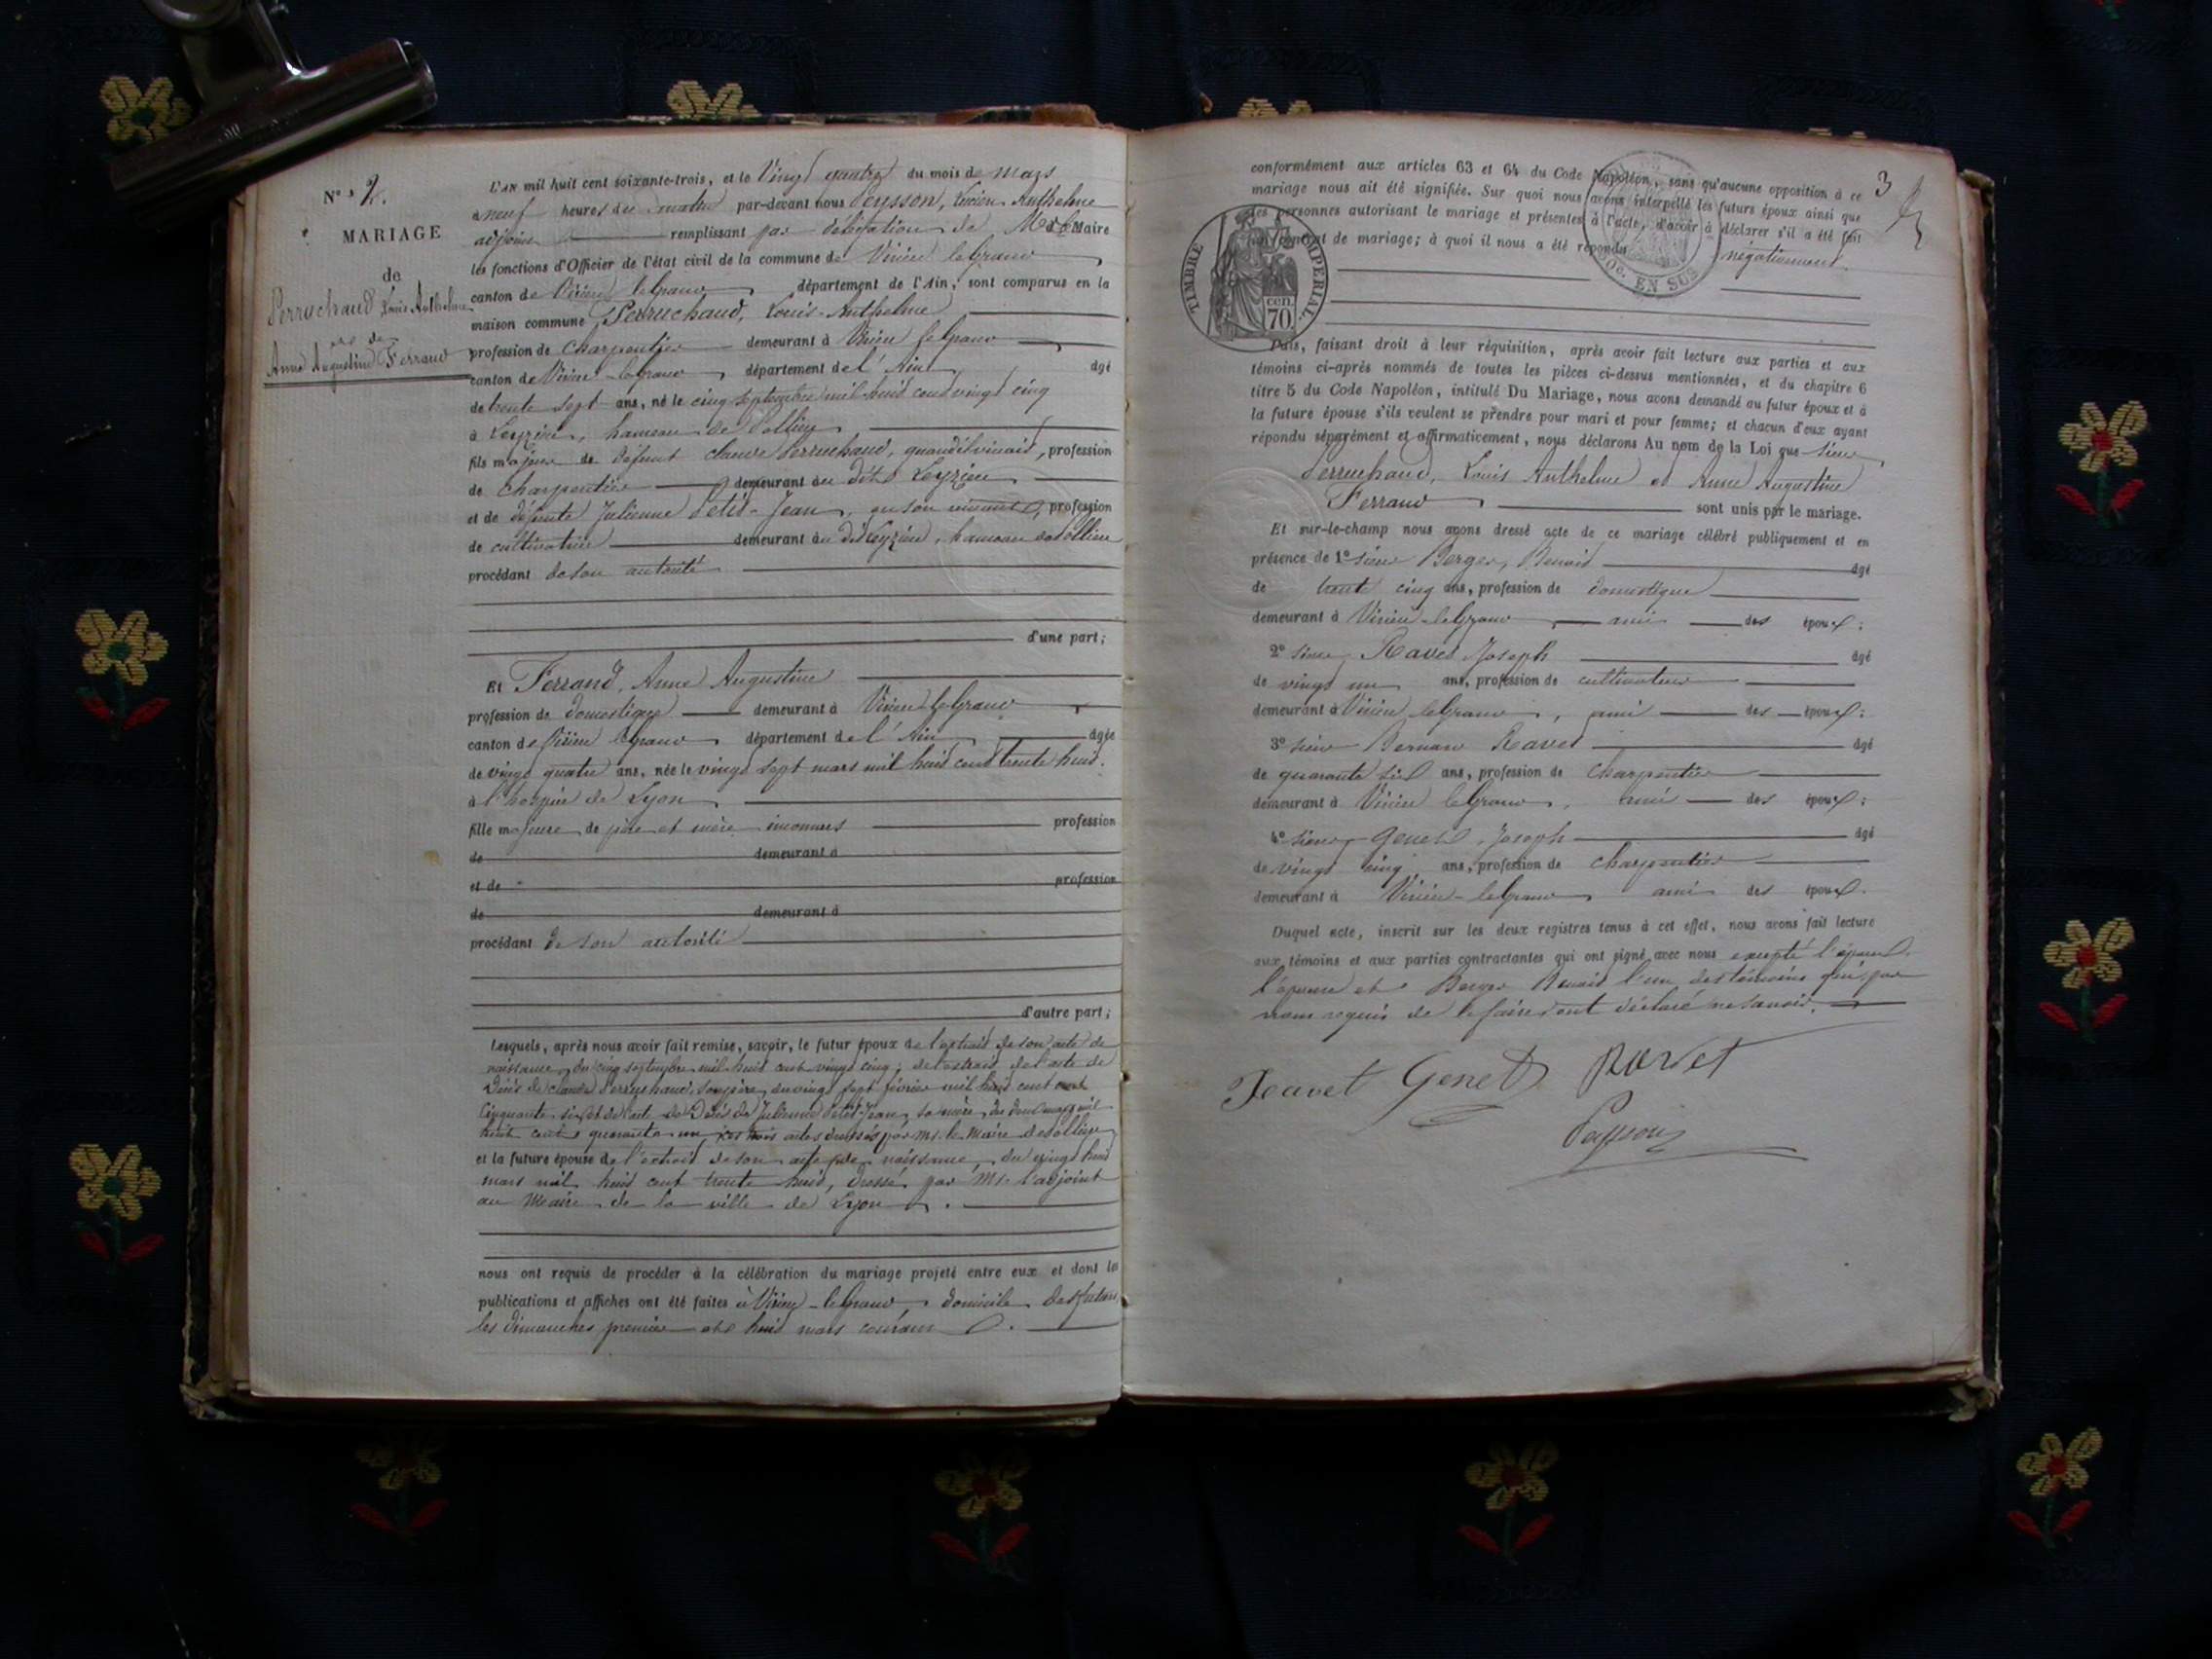 N° 2.
MARIAGE
de
Perruchaud Louis Anthelme
et de
Anne Augustine Ferrand
L'AN mil huit cent soixante-trois, et le Vingt quatre du mois de mars
à neuf heures du matin par-devant nous Peysson, Lucien Anthelme
adjoint remplissant par délégation de Mr le Maire
les fonctions d'Officier de l'état civil de la commune de Virieu le Grand
canton de Virieu le Grand département de l'Ain, sont comparus en la
maison commune Perruchaud, Louis-Anthelme
profession de charpentier demeurant à Virieu le Grand
canton de Virieu-le Grand, département de l'Ain âgé
de trente sept ans, né le cinq septembre mil huit cent vingt cinq
à Leyzieu, hameau de Pollieu
fils majeur de défunt Claude Perruchaud, quand il vivait, profession
de charpentier demeurant au dit Leyzieu
et de défunte Julienne Petit-Jean, en son vivant, profession
de cultivatrice demeurant au dit Leyzieu, hameau de Pollieu
procédant de son autorité
d'une part;
Et Ferrand, Anne Augustine
profession de domestique demeurant à Virieu le Grand
canton de Virieu le Grand département de l'Ain âgée
de vingt quatre ans, née le vingt sept mars mil huit cent trente huit.
à l'hospice de Lyon
fille majeure de père et mère inconnus profession
de demeurant à
et de profession
de demeurant à
procédant de son autorité
d'autre part;
Lesquels, après nous avoir fait remise, savoir, le futur époux de l'extrait de son acte de
naissance, du cinq septembre mil huit cent vingt cinq; de l'extrait de l'acte de
décès de Claude Perruchaud, son père, du vingt sept février mil huit cent
cinquante six et de l'acte de décès de Julienne Petit-Jean, sa mère, du deux mars mil
huit cent quarante un, ces trois actes dressés par Mr. le Maire de Pollieu
et la future épouse de l'extrait de son acte de naissance, du vingt huit
mars mil huit cent trente huit, dressé par Mr. l'adjoint
au Maire de la ville de Lyon.
nous ont requis de procéder à la célébration du mariage projeté entre eux et dont les
publications et affiches ont été faites à Virieu-le Grand, domicile des futurs
les dimanches premier et huit mars courant.
3
conformément aux articles 63 et 64 du Code Napoléon, sans qu'aucune opposition à ce
mariage nous ait été signifiée. Sur quoi nous avons interpellé les futurs époux ainsi que
les personnes autorisant le mariage et présentes à l'acte, d'avoir à déclarer s'il a été fait
un contrat de mariage; à quoi il nous a été répondu négativement.
TIMBRE IMPERIAL.
cen.
70
50c. EN SUS
Puis, faisant droit à leur réquisition, après avoir fait lecture aux parties et aux
témoins ci-après nommés de toutes les pièces ci-dessus mentionnées, et du chapitre 6
titre 5 du Code Napoléon, intitulé Du Mariage, nous avons demandé au futur époux et à
la future épouse s'ils veulent se prendre pour mari et pour femme; et chacun d'eux ayant
répondu séparément et affirmativement, nous déclarons Au nom de la Loi que sieur
Perruchaud, Louis Anthelme et Anne Augustine
Ferrand sont unis par le mariage.
Et sur-le-champ nous avons dressé acte de ce mariage célébré publiquement et en
présence de 1° sieur Berger, Benoit âgé
de trente cinq ans, profession de domestique
demeurant à Virieu-le Grand ami des époux;
2° sieur Ravet Joseph âgé
de vingt un ans, profession de cultivateur
demeurant à Virieu le Grand, ami des époux;
3° sieur Bernard Ravet âgé
de quarante six ans, profession de charpentier
demeurant à Virieu le Grand, ami des époux;
4° sieur Genet, Joseph âgé
de vingt cinq ans, profession de charpentier
demeurant à Virieu-le Grand ami des époux.
Duquel acte, inscrit sur les deux registres tenus à cet effet, nous avons fait lecture
aux témoins et aux parties contractantes qui ont signé avec nous excepté l'époux,
l'épouse et Berger Benoit l'un des témoins qui, par
nous requis de le faire, ont déclaré ne savoir.
Ravet Genet Ravet
Peysson